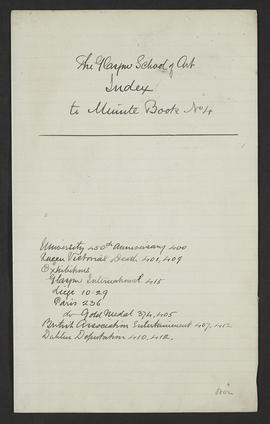 The Glasgow School of Art
Index
to Minute Book No 4
University 450th Anniversary 400
Queen Victoria's Death 401, 409
Exhibitions
Glasgow International 415
Liege 10-29
Paris 236
do Gold Medal 374, 405
British Association Entertainment 407, 412
Dublin Deputation 410, 412.